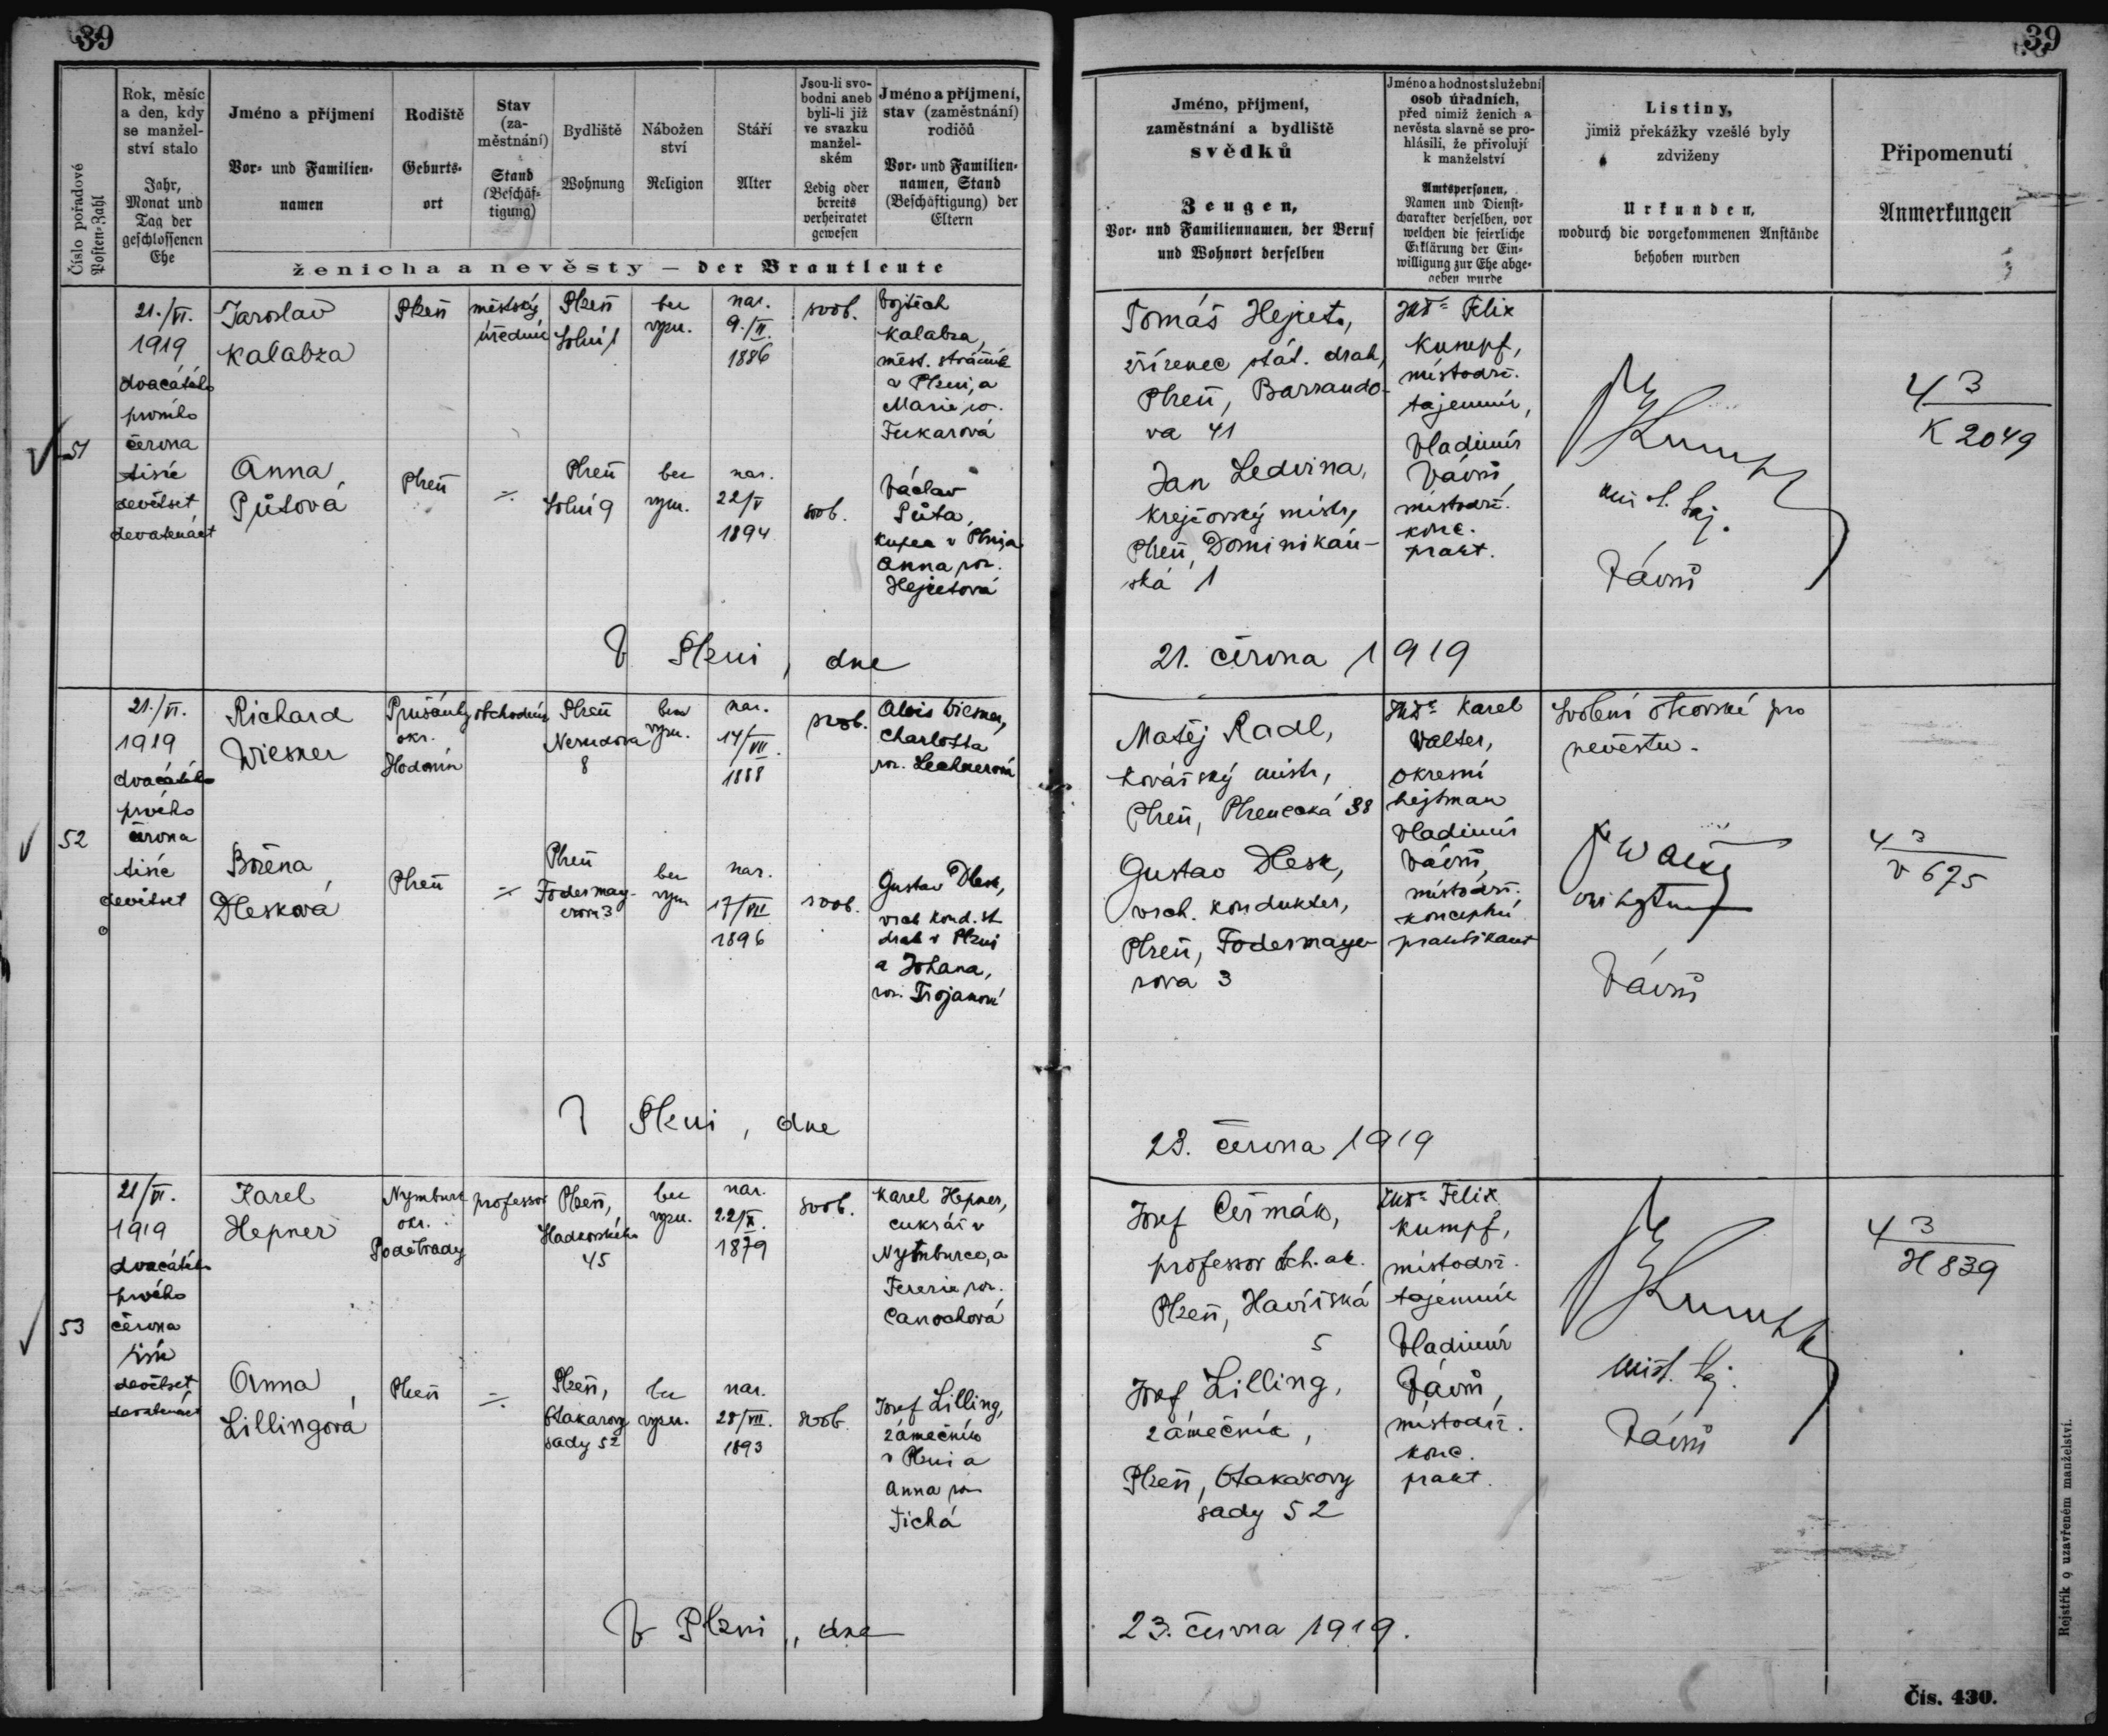 39
39
Číslo pořadové
Posten-Zahl
Rok, měsíc
a den, kdy
se manžel-
ství stalo
Jahr,
Monat und
Tag der
geschlossenen
Ehe
Jméno a příjmení
Vor- und Familien-
namen
Rodiště
Geburts-
ort
Stav
(za-
městnání)
Stand
(Beschäf-
tigung)
Bydliště
Wohnung
Nábožen
ství
Religion
Stáří
Alter
Jsou-li svo-
bodni aneb
byli-li již
ve svazku
manžel-
ském
Ledig oder
bereits
verheiratet
gewesen
Jméno a příjmení,
stav (zaměstnání)
rodičů
Vor- und Familien-
namen, Stand
(Beschäftigung) der
Eltern
ženicha a nevěsty — der Brautleute
Jméno, příjmení,
zaměstnání a bydliště
svědků
Zeugen,
Vor- und Familiennamen, der Beruf
und Wohnort derselben
Jméno a hodnost služební
osob úřadních,
před nimiž ženich a
nevěsta slavně se pro-
hlásili, že přivolují
k manželství
Amtspersonen,
Namen und Dienst-
charakter derselben, vor
welchen die feierliche
Erklärung der Ein-
willigung zur Ehe abge-
geben wurde
Listiny,
jimiž překážky vzešlé byly
zdviženy
Urkunden,
wodurch die vorgekommenen Anstände
behoben wurden
Připomenutí
Anmerkungen
51
21./VI.
1919
dvacátého
prvního
června
tisíc
devětset
devatenáct
Jaroslav
Kalabza
Plzeň
městský
úředník
Plzeň
Solní 1
bez
vyzn.
nar.
9./II.
1886
svob.
Vojtěch
Kalabza,
měst. strážník
v Plzni, a
Marie, roz.
Fukarová
Anna
Půtová
Plzeň
Plzeň
Solní 9
bez
vyzn.
nar.
22/V
1894
svob.
Václav
Půta,
kupec v Plzni, a
Anna roz.
Hejretová
Tomáš Hejret,
zřízenec stát. drah,
Plzeň, Barrando-
va 41
Jan Ledvina,
krejčovský mistr,
Plzeň, Dominikán-
ská 1
JUDr Felix
Kumpf,
místodrž.
tajemník,
Vladimír
Vávrů,
místodrž.
konc.
prakt.
Kumpf
míst. taj.
Vávrů
4 3
K 2049
V Plzni, dne
21. června 1919
52
21./VI.
1919
dvacátého
prvého
června
tisíc
devětset
Richard
Wiesner
Prušánky
okr.
Hodonín
obchodník
Plzeň
Nerudova
8
bez
vyzn.
nar.
14/VII.
1888
svob.
Alois Wiesner,
Charlotta
roz. Lechnerová
Božena
Dlesková
Plzeň
Plzeň
Fodermay-
erova 3
bez
vyzn
nar.
17/VII
1896
svob.
Gustav Dlesk,
vrch. kond. st.
drah v Plzni
a Johana,
roz. Trojanová
Matěj Radl,
kovářský mistr,
Plzeň, Plzenecká 38
Gustav Dlesk,
vrch. kondukter,
Plzeň, Fodermaye-
rova 3
JUDr Karel
Walter,
okresní
hejtman
Vladimír
Vávrů,
místodrž.
konceptní
praktikant
Svolení otcovské pro
nevěstu.
Walter
Vávrů
4 3
V 675
V Plzni, dne
23. června 1919
53
21/VI.
1919
dvacátého
prvého
června
tisíc
devětset
devatenáct
Karel
Hepner
Nymburk
okr.
Poděbrady
professor
Plzeň,
45
bez
vyzn.
nar.
22/X.
1879
svob.
Karel Hepner,
cukrář v
Nymburce, a
Terezie roz.
Canochová
Anna
Lillingová
Plzeň
Plzeň,
Otakarovy
sady 52
bez
vyzn.
nar.
28/VII.
1893
svob.
Josef Lilling,
zámečník
v Plzni a
Anna roz
Tichá
Josef Čermák,
professor obch. ak.
Plzeň, Havířská
5
Josef Lilling,
zámečník,
Plzeň, Otakarovy
sady 52
JUDr Felix
Kumpf,
místodrž.
tajemník
Vladimír
Vávrů,
místodrž.
konc.
prakt.
Kumpf
míst. taj.
Vávrů
4 3
H 839
V Plzni, dne
23. června 1919.
Rejstřík o uzavřeném manželství.
Čís. 430.